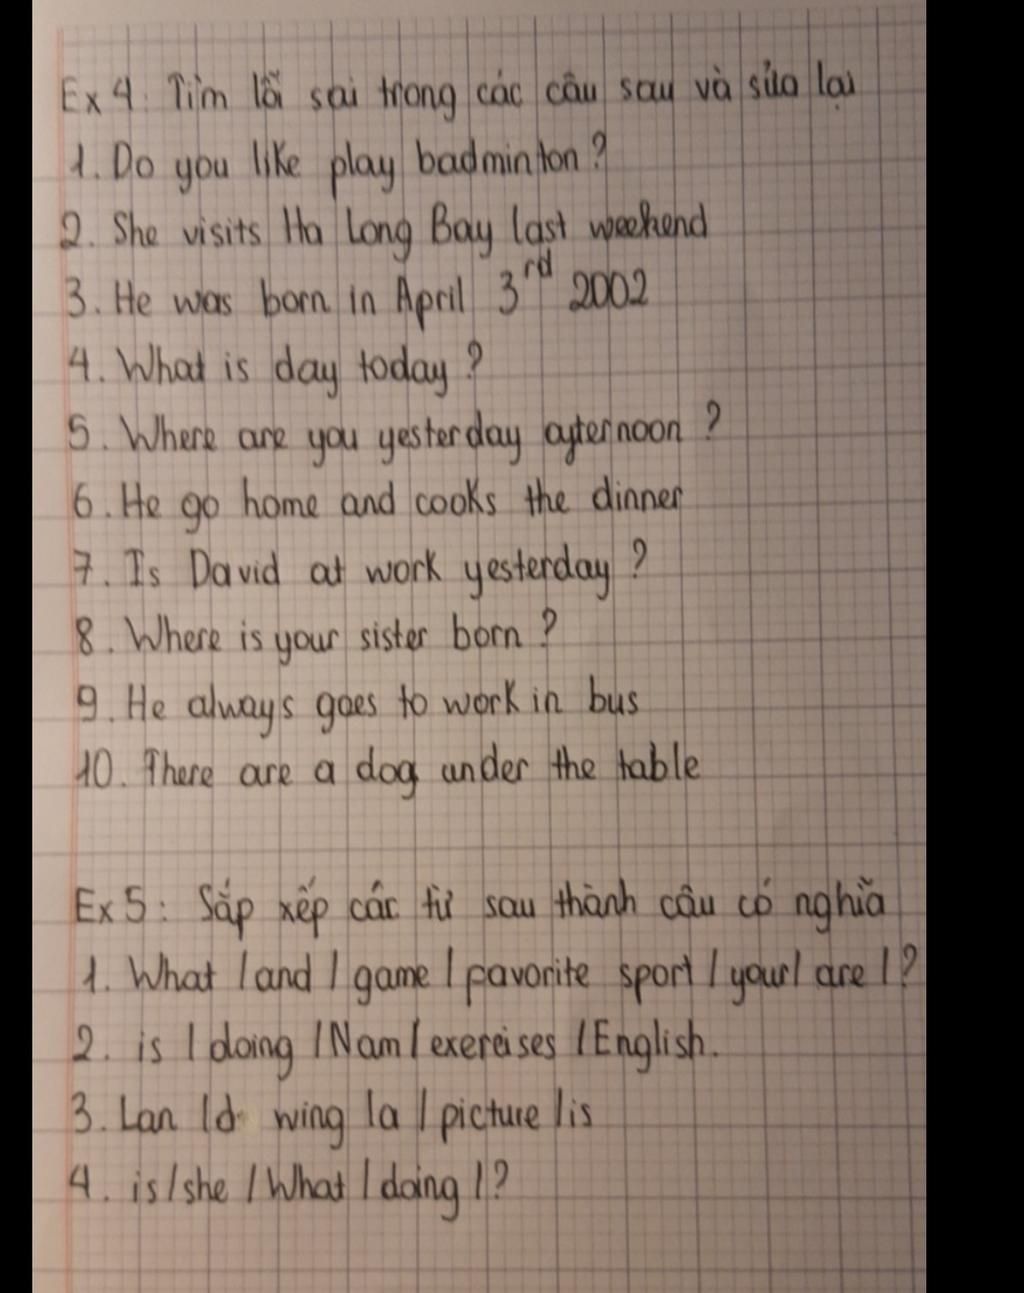 Ex 4: Tìm lỗi sai trong các câu sau và sửa lại
1. Do you like play badminton?
2. She visits Ha Long Bay last weekend
3. He was born in April 3rd 2002
4. What is day today?
5. Where are you yesterday afternoon?
6. He go home and cooks the dinner
7. Is David at work yesterday?
8. Where is your sister born?
9. He always goes to work in bus
10. There are a dog under the table
Ex 5: Sắp xếp các từ sau thành câu có nghĩa
1. What / and / game / favorite sport / your / are / ?
2. is / doing / Nam / exercises / English.
3. Lan / d wing / a / picture / is
4. is / she / What / doing / ?